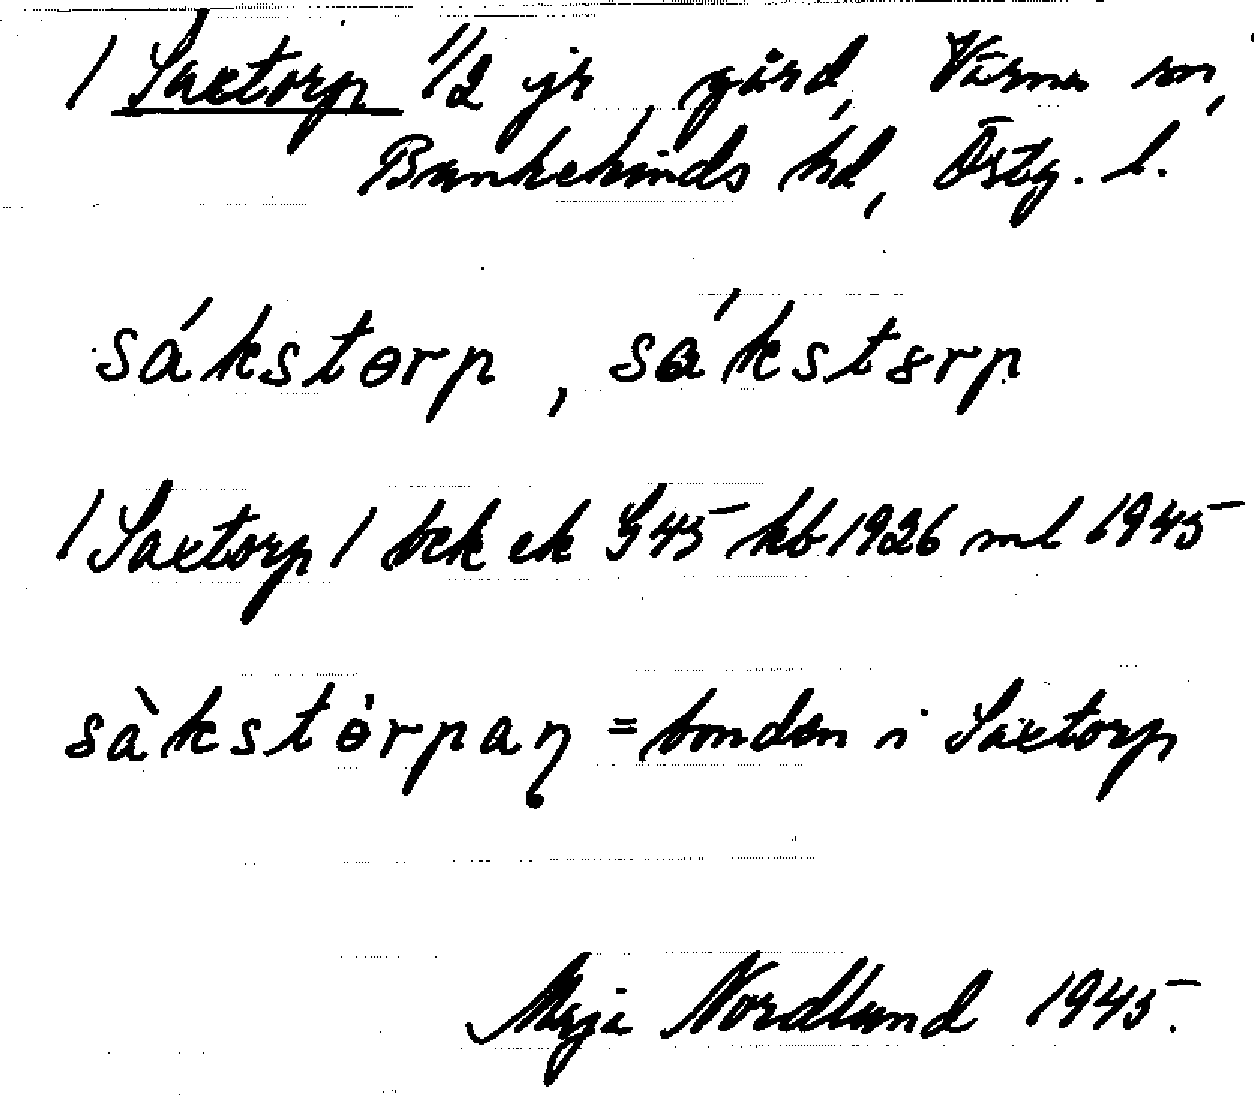 / Saxtorp 1/2 jr, gård, Värna sn,
Bankekinds hd, Östg. l.
sákstɵrp, sákstɞrp
/ Saxtorp / bek ek G 45 kb 1926 ml 1945
sàkstɵ̀rpaɳ = bonden i Saxtorp
Maja Nordlund 1945.